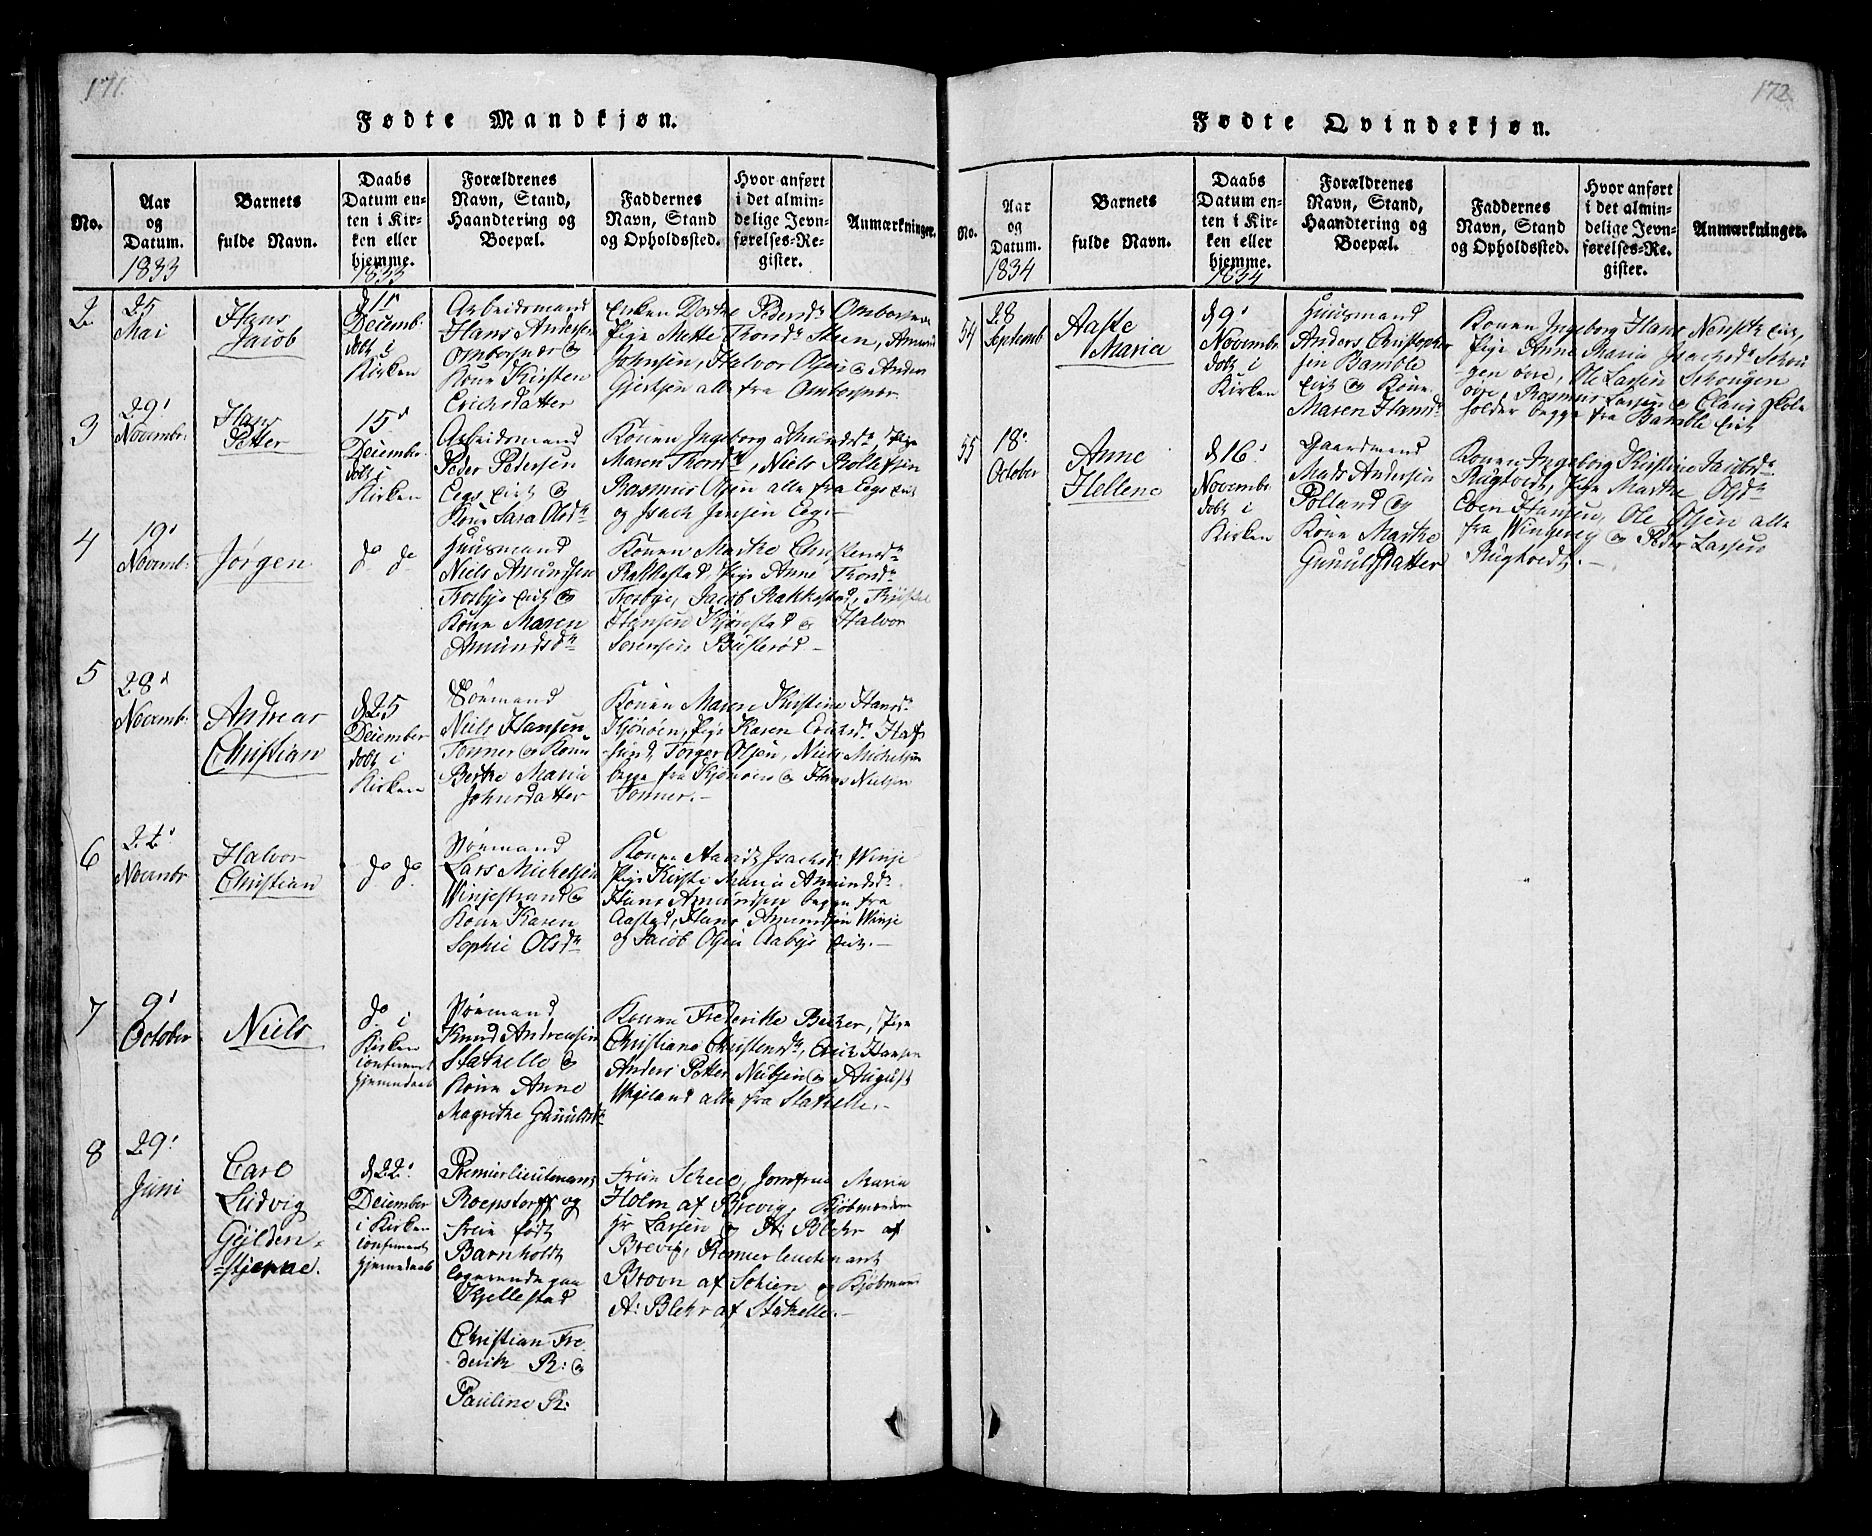 171.
Fødte Mandkjøn.
No.
Aar
og
Datum.
1833
Barnets
fulde Navn.
Daabs
Datum en-
ten i Kir-
ken eller
hjemme.
1833
Forældrenes
Navn, Stand,
Haandtering og
Boepæl.
Faddernes
Navn, Stand
og Opholdssted.
Hvor anført
i det almin-
delige Jevn-
førelses-Re-
gister.
Anmærkninger.
2
25
Mai
Hans
Jacob
d 15
Decemb:
døbt i
Kirken
Arbeidsmand
Hans Andersen
Omborsnæs &
Kone Kirsten
Erichsdatter
Enken Dorthe Pedersdr Omborsnæs
Pige Mette Thordr Steen,
Johnsen, Halvor Olsen & Anders
Giertsen alle fra Omborsnæs
3
29'
Novembr
Hans
Petter
15d
Decembr
døbt i
Kirken
Arbeidsmand
Peder Pedersen
Eegs Eiet &
Kone Sara Olsdr
Konen Ingeborg Amundsdr, Pige
Maren Thordr, Niels Rollefsen
Rasmus Olsen alle fra Eegs Eiet
og Isach Jensen Eeg.
4
19'
Novemb:
Jørgen
do do
Huusmand
Niels Amundsen
Trosbye Eiet &
Kone Maren
Amundsdr
Konen Marthe Christensdr
Rakkestad, Pige Anne Thordr
Trosbye, Jacob Rakkestad,
Hansen Kjønstad & Halvor
Sørensen Busterød
5
28d
Novemb:
Andreas
Christian
d 25
December
døbt i
Kirken
Sømand
Niels Hansen
Tonner & Kone
Berthe Maria
Johnsdatter
Konen Maren Kristine Hansdr
Kjønøen, Pige Karen Erichsdr Haf
sund, Torger Olsen, Niels Michelsen
begge fra Kjønøen & Hans Nielsen
Tonner.
6
22'
Novembr
Halvor
Christian
do do
Sømand
Lars Michelsen
Winjestrand &
Kone Karen
Sophie Olsdr
Konen Isachsdr Winje
Pige Kirsti Maria Amundsdr
Hans Amundsen begge fra
Aastad, Hans Amundsen Winje
og Jacob Olsen Aabye Eiet.
7
9'
October
Niels
do i
Kirken
confirmert
hjemmedaab
Sømand
Knud Andreasen
Stathelle &
Kone Anne
Magrethe Gunulsdr
Konen Frederikke Becker, Pige
Christiane Christensdr, Erich Hansen
Anders Petter Nielsen & August
Wigeland alle fra Stathelle.
8
29'
Juni
Carl
Ludvig
Gylden-
stjerne.
d 22'
December
i Kirken
confirmert
hjemmedaab
Premierlieutenant
Roepstorff og
Frue født
Barnholdt
logerende paa
Kjellestad
Christian Fre
derik R: &
Pauline R:
Frue Scheel, Jomfrue Maria
Holm af Brevig, Kjøbmændene
Larsen & A: Blehr af
Brevig, Premierleutenant
Brovn af Schien og Kjøbmand
A: Blehr af Stathelle.
172.
Fødte Qvindekjøn.
No.
Aar
og
Datum.
1834
Barnets
fulde Navn.
Daabs
Datum en-
ten i Kir-
ken eller
hjemme.
1834
Forældrenes
Navn, Stand,
Haandtering og
Boepæl.
Faddernes
Navn, Stand
og Opholdssted.
Hvor anført
i det almin-
delige Jevn-
førelses-Re-
gister.
Anmærkninger.
54
28
Septemb
Aaste
Maria
d 9'
Novembr
døbt i
Kirken
Huusmand
Anders Christopher
sen Bamble
Eiet & Kone
Maren Hansdr
Konen Ingeborg Hans Eiet,
Pige Anne Maria Isachsdr Schou
gen øvre, Ole Larsen Schougen
øvre, Rasmus Larsen & Claus Skole
holder begge fra Bamble Eiet
55
18'
October
Anne
Hellene
d 16'
Novembr
døbt i
Kirken
Gaardmand
Mads Andersen
Polland &
Kone Marthe
Gunulsdatter
Konen Ingeborg Kristine Jacobsdr
Rugtvedt, Pige Marthe Olsdr
Even Hansen, Ole Olsen alle
fra & Peder Larsen
Rugtvedt.